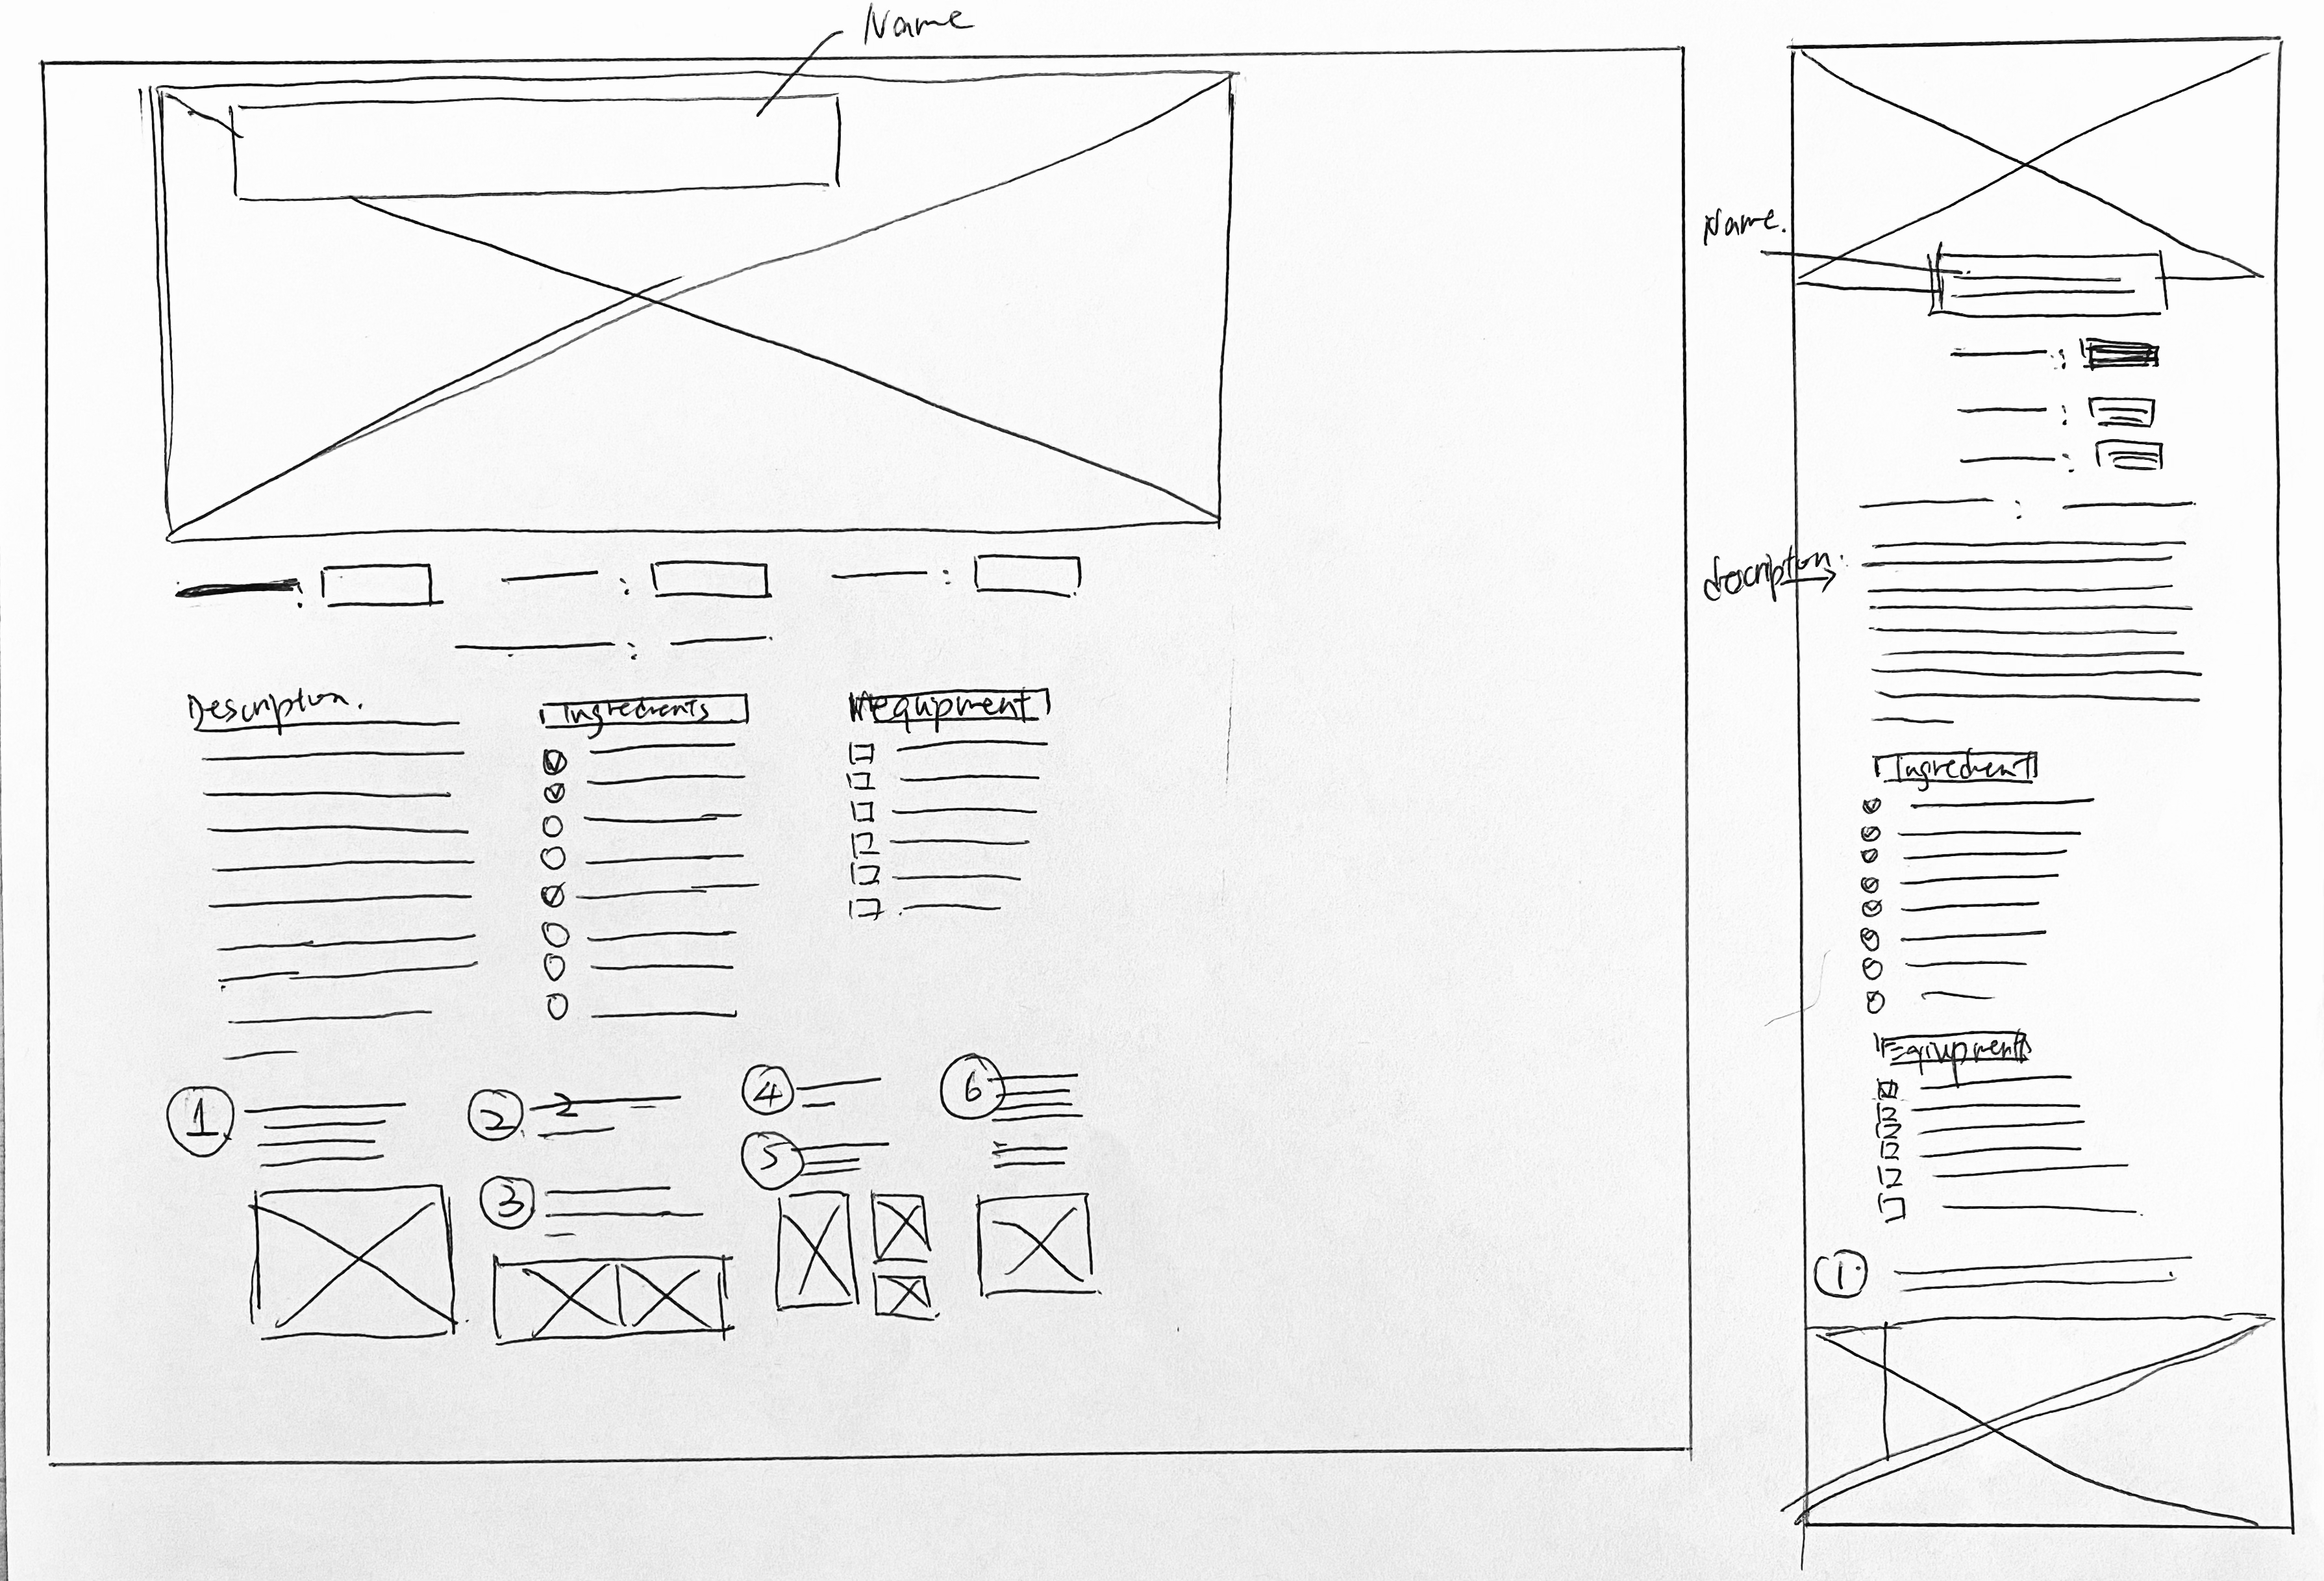 Name
Description.
Ingredients
equipment
1
2
2
3
4
5
6
Name.
description.
Ingredient
Equipments
1